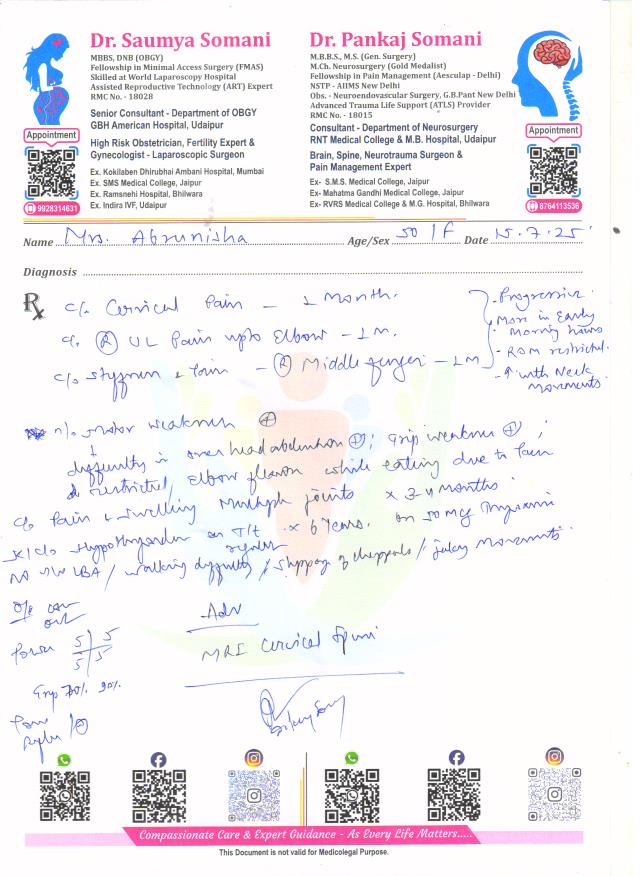 Dr. Saumya Somani
MBBS, DNB (OBGY)
Fellowship in Minimal Access Surgery (FMAS)
Skilled at World Laparoscopy Hospital
Assisted Reproductive Technology (ART) Expert
RMC No. - 18028
Senior Consultant - Department of OBGY
GBH American Hospital, Udaipur
High Risk Obstetrician, Fertility Expert &
Gynecologist - Laparoscopic Surgeon
Ex. Kokilaben Dhirubhai Ambani Hospital, Mumbai
Ex. SMS Medical College, Jaipur
Ex. Ramsnehi Hospital, Bhilwara
Ex. Indira IVF, Udaipur
Appointment
9928314631
Dr. Pankaj Somani
M.B.B.S., M.S. (Gen. Surgery)
M.Ch. Neurosurgery (Gold Medalist)
Fellowship in Pain Management (Aesculap - Delhi)
NSTP - AIIMS New Delhi
Obs. - Neuroendovascular Surgery, G.B.Pant New Delhi
Advanced Trauma Life Support (ATLS) Provider
RMC No. - 18015
Consultant - Department of Neurosurgery
RNT Medical College & M.B. Hospital, Udaipur
Brain, Spine, Neurotrauma Surgeon &
Pain Management Expert
Ex- S.M.S. Medical College, Jaipur
Ex- Mahatma Gandhi Medical College, Jaipur
Ex- RVRS Medical College & M.G. Hospital, Bhilwara
Appointment
8764113536
Name Mrs. Abrunisha Age/Sex 50/F Date 15.7.25
Diagnosis
Rx c/o Cervical Pain - 1 Month.
c/o (R) UL Pain upto Elbow - 1 M.
c/o Pain - (R) Middle finger - 1 M
- Progressive
- More in Early
Morning hours
- ROM restricted.
- ↑ with Neck
movements.
Motor weakness (+)
↓
difficulty in overhead abduction (+); Grip weakness (+);
restricted/ Elbow flexion while eating due to Pain
c/o Pain + swelling Multiple joints x 3-4 months.
K/c/o Hypothyroidism on T/t x 6 years. on 50 mcg
regular
LBA / walking difficulty / slipping of chappals / jerky movements
O/e
Power 5|5
5|5
Grip 70% 90%
Adv
MRI Cervical Spine
Compassionate Care & Expert Guidance - As Every Life Matters.....
This Document is not valid for Medicolegal Purpose.